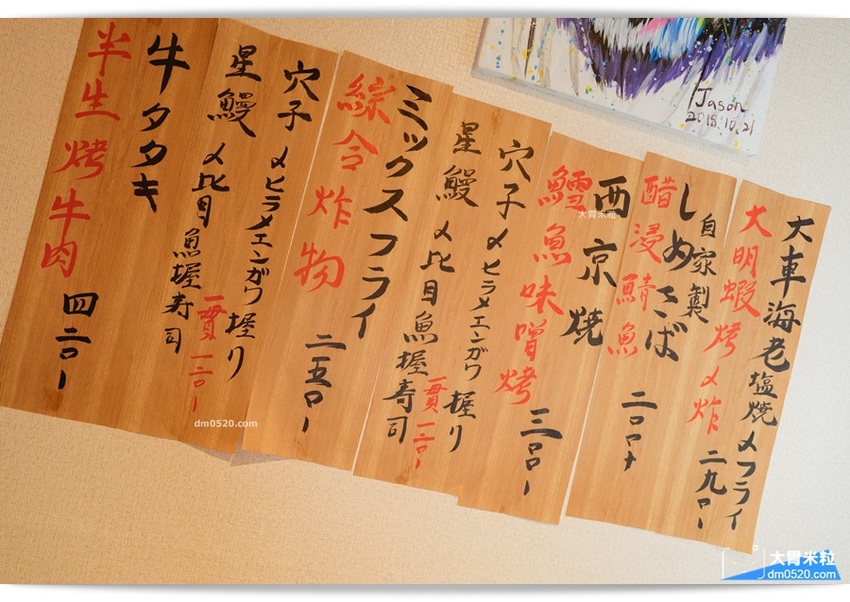 大車海老塩焼〆フライ
大明蝦烤〆炸 二九〇-
自家製
しめさば
醋浸鯖魚 二〇〇
西京焼
鱈魚味噌烤 三〇〇-
穴子〆ヒラメエンガワ握り
星鰻〆比目魚握寿司
一貫 一二〇-
ミックスフライ
綜合炸物 二五〇-
穴子〆ヒラメエンガワ握り
星鰻〆比目魚握寿司
一貫 一二〇-
牛タタキ
半生烤牛肉 四二〇-
Jason
2018.10.21
大胃米粒
dm0520.com
大胃米粒
dm0520.com